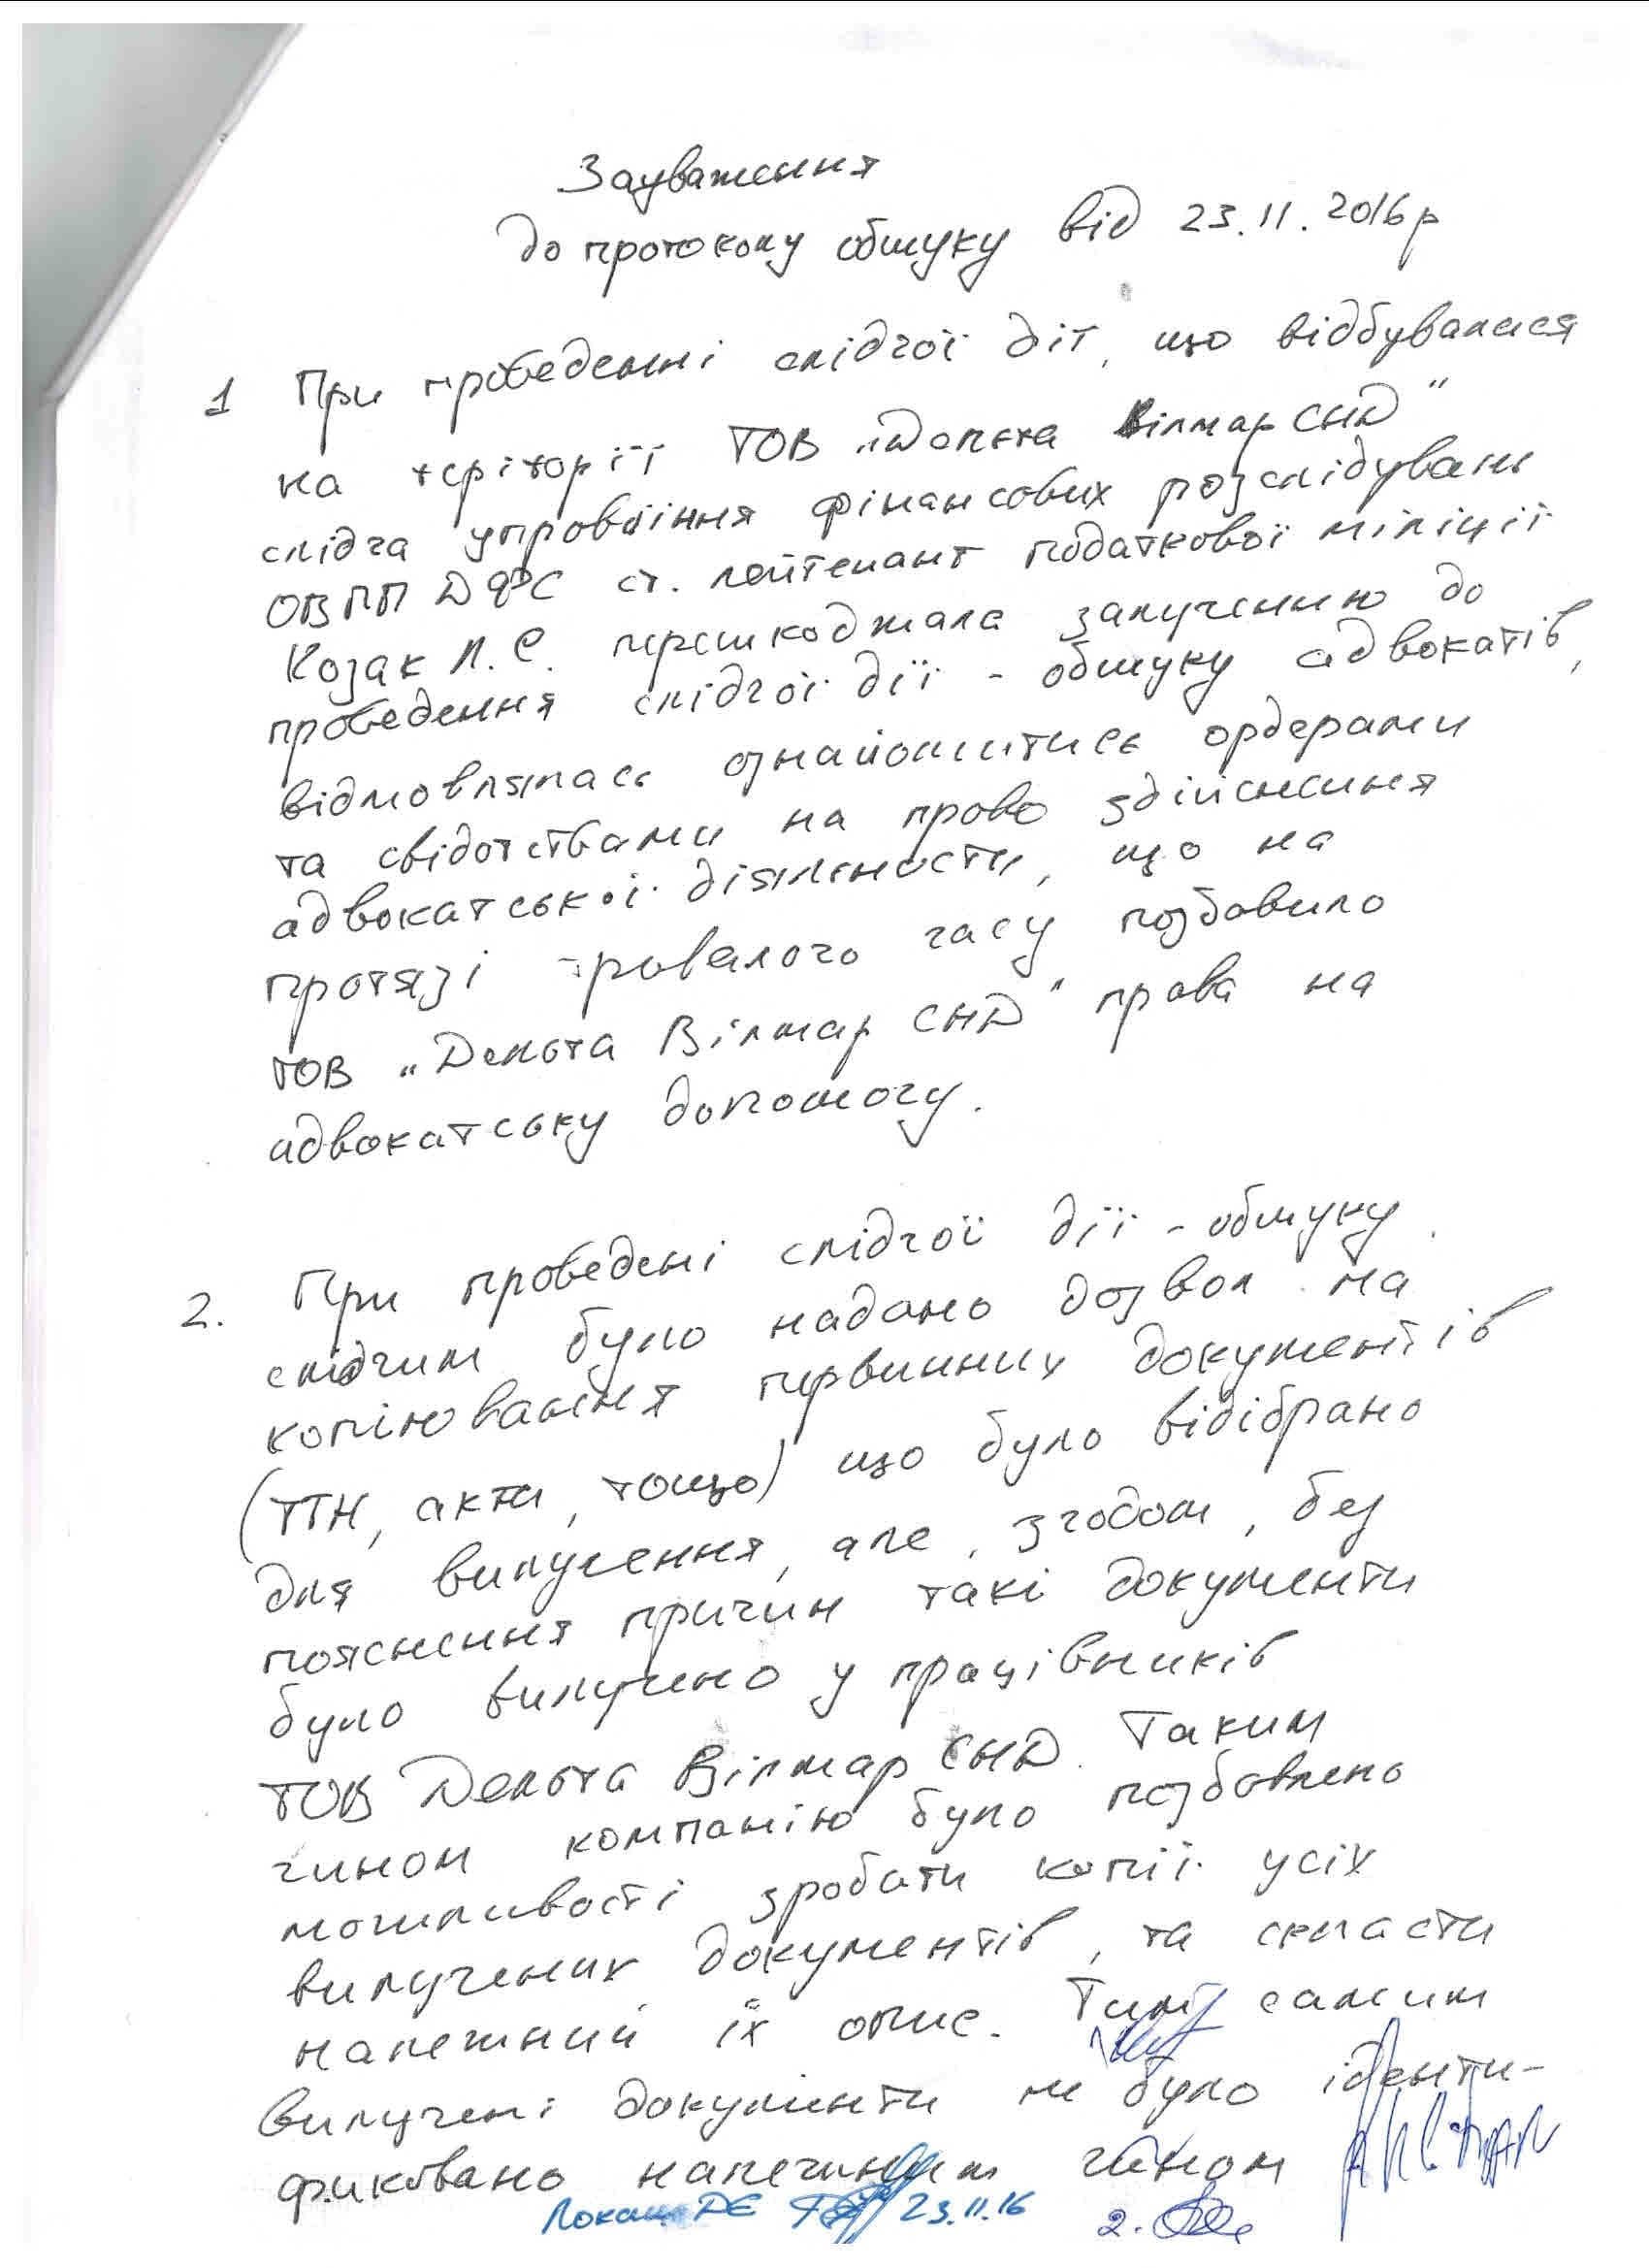 Зауваження
до протоколу обшуку від 23.11.2016р
1 При проведенні слідчої дії, що відбувалася
на теріторії ТОВ "Дельта Вілмар СНД"
слідча управління фінансових розслідувань
ОВПП ДФС ст. лейтенант податкової міліції
Козак Л.С. перешкоджала залученню до
проведення слідчої дії - обшуку адвокатів,
відмовлялась ознайомитись ордерами
та свідотствами на право здійснення
адвокатської діяльності, що на
протязі тривалого часу позбавило
ТОВ "Дельта Вілмар СНД" права на
адвокатську допомогу.
2. При проведені слідчої дії - обшуку
слідчим було надано дозвол на
копіювання первинних документів
(ТТН, акти, тощо) що було відібрано
для вилучення, але, згодом, без
пояснення причин такі документи
було вилучено у працівників
ТОВ Дельта Вілмар СНД. Таким
чином компанію було позбавлено
можливості зробити копії усіх
вилучених документів, та скласти
належний їх опис. Тим самим
вилучені документи не було іденти-
фиковано належним чином
23.11.16
2.